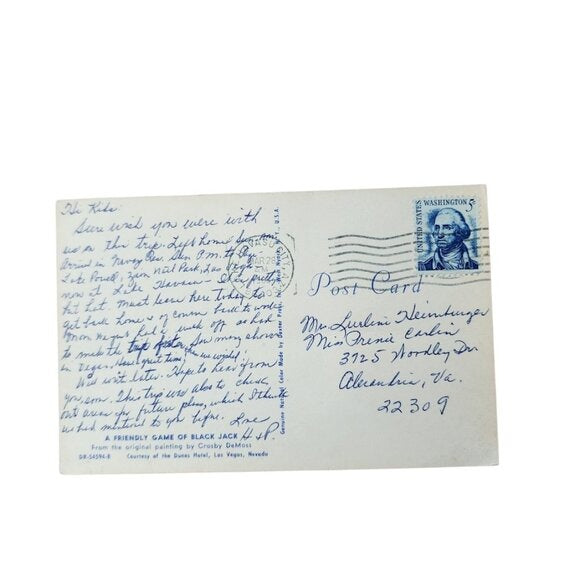 Hi Kids
Sure wish you were with
us on this trip. Left home Sun.
Arrive in
Lake Powell, Zion Nat'l Park, Las Vegas
now at Lake Havasu - It's pretty
hot hot. Must leave here today to
get back home & of course back to work.
Mom Hagus had week off so had
to make the trip Saw many shows
in Vegas. Have great time,
Will write later. Hope to hear from
you soon. This trip was also to check
out area for future plans, which I think
we had mentioned to you before. Love
H & P.
A FRIENDLY GAME OF BLACK JACK
From the original painting by Crosby DeMoss
DR-54594-B Courtesy of the Dunes Hotel, Las Vegas, Nevada
Genuine Natural Color Made by Dexter Press, Inc., West Nyack, N.Y., U.S.A.
UNITED STATES
WASHINGTON 5c
Post Card
Mrs. Lurlini Heinburger
Miss Trenie Carlin
3925 Woodley Dr.
Alexandria, Va.
22309